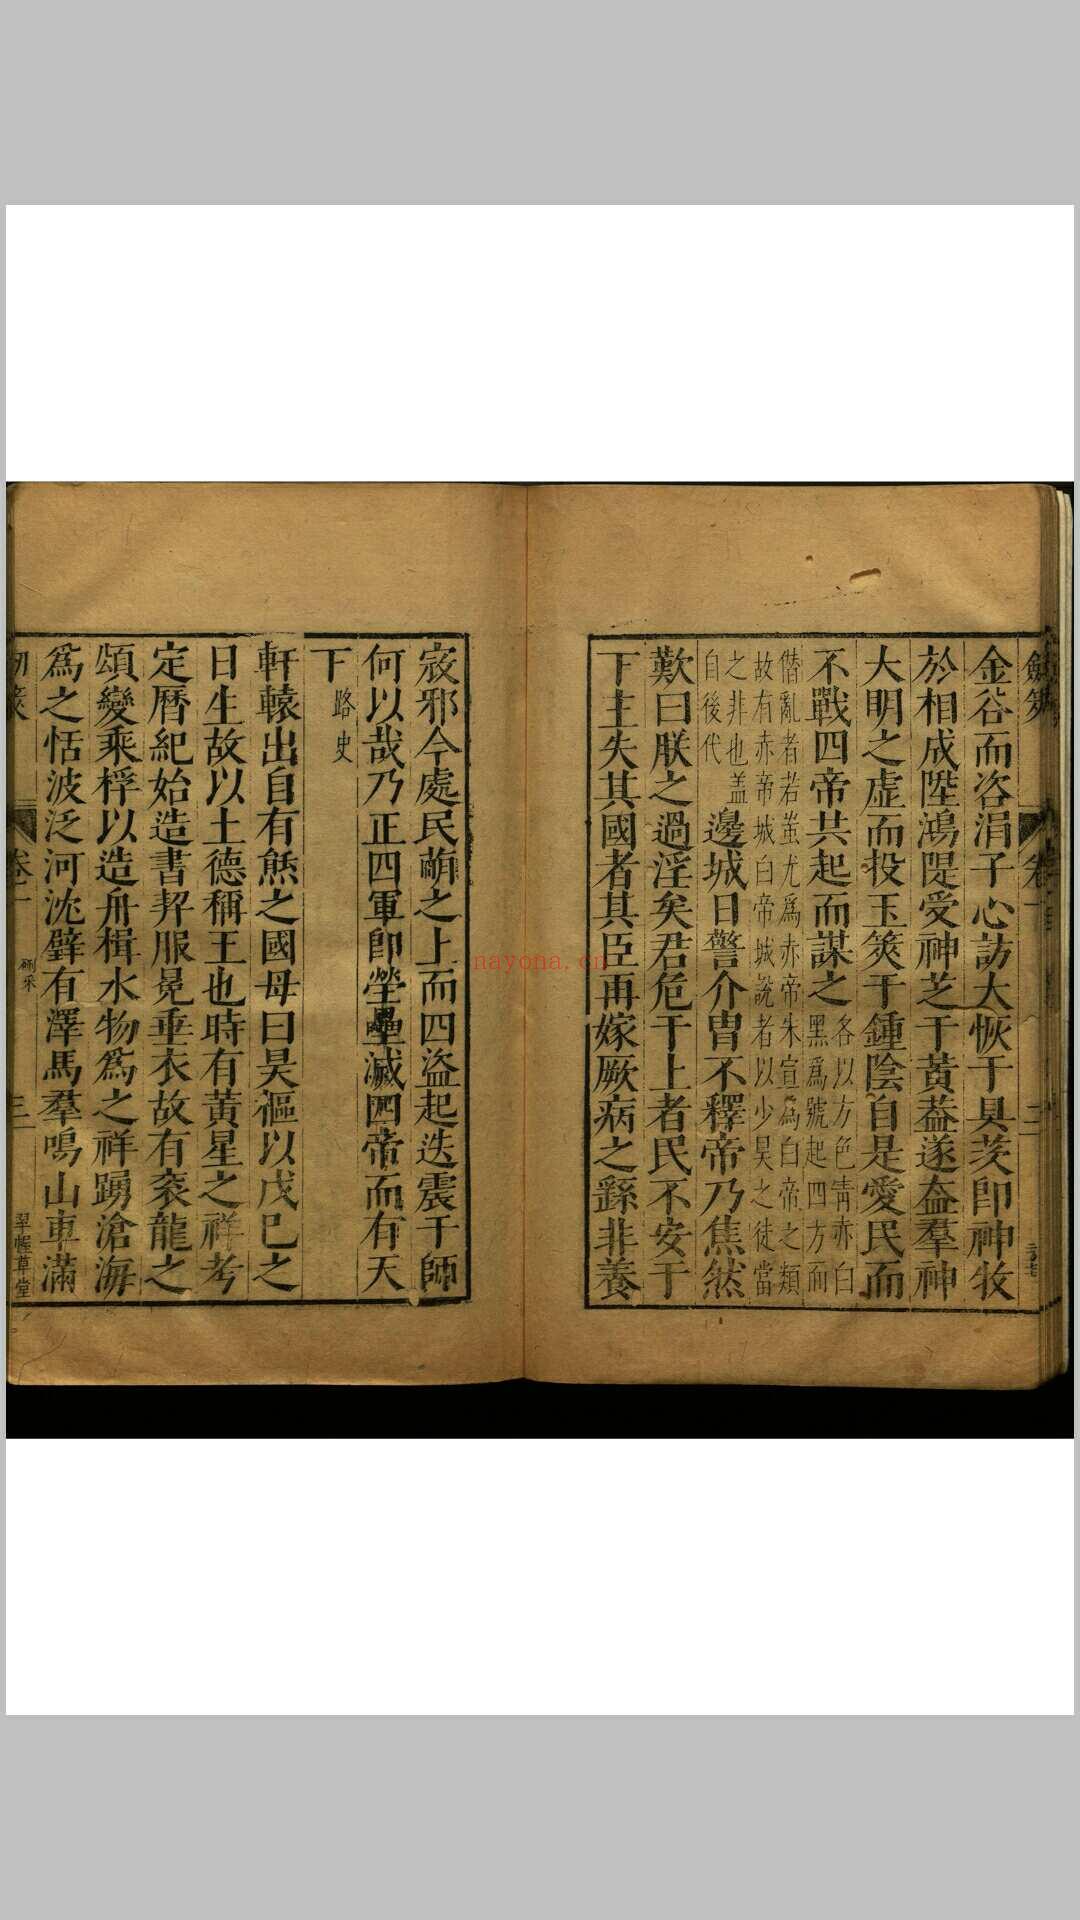 劒筴
卷一
二
金谷而咨涓子心訪大恢于具茨卽神牧
於相成陞鴻隄受神芝于黃葢遂葢羣神
大明之虛而投玉筴于鍾陰自是愛民而
不戰四帝共起而謀之各以方色靑赤白黑爲號起四方而
僭亂者若蚩尤爲赤帝朱宣爲白帝之類
故有赤帝城白帝城說者以少昊之徒當
之非也葢自後代邊城日警介胄不釋帝乃焦然
歎曰朕之過淫矣君危于上者民不安于
下主失其國者其臣再嫁厥病之繇非養
寇邪今處民萌之上而四盜起迭震于師
何以哉乃正四軍卽塋壘滅四帝而有天
下路史
軒轅出自有熊之國母曰昊樞以戊巳之
日生故以土德稱王也時有黃星之祥考
定曆紀始造書契服冕垂衣故有袞龍之
頌變乘桴以造舟楫水物爲之祥踴滄海
爲之恬波泛河沈璧有澤馬羣鳴山車滿
卷一
三
翠幄草堂
nayona.cn